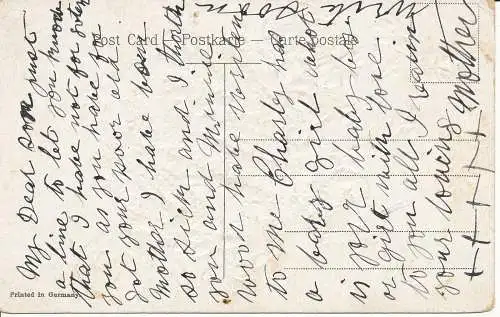 Post Card - Postkarte - Carte postale
My Dear son just
a line to let you know
that I have not forgot
you as you have for
got your poor old
Mother I have been
so sick and I
son and
have
to me Charly has
a baby girl what
is your baby boy
or girl with love
to you all I remain
your loving Mother
++++
write soon
Printed in Germany